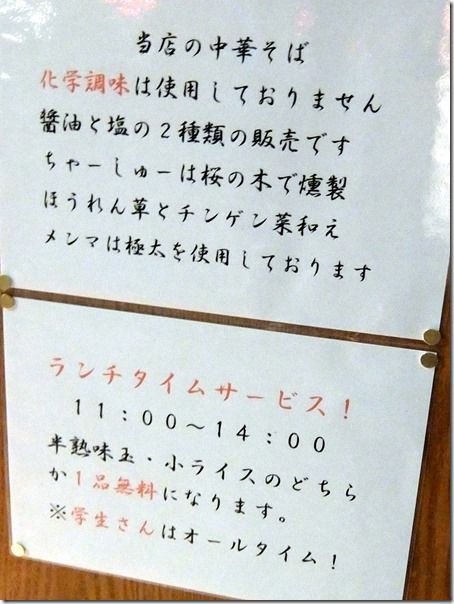 当店の中華そば
化学調味は使用しておりません
醤油と塩の２種類の販売です
ちゃーしゅーは桜の木で燻製
ほうれん草とチンゲン菜和え
メンマは極太を使用しております
ランチタイムサービス！
１１：００～１４：００
半熟味玉・小ライスのどちら
か１品無料になります。
※学生さんはオールタイム！